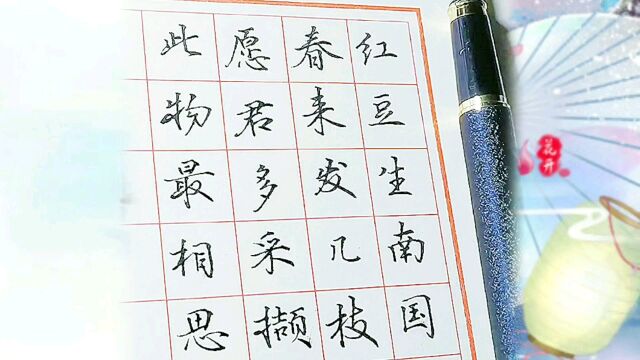 红豆生南国
春来发几枝
愿君多采撷
此物最相思
花开